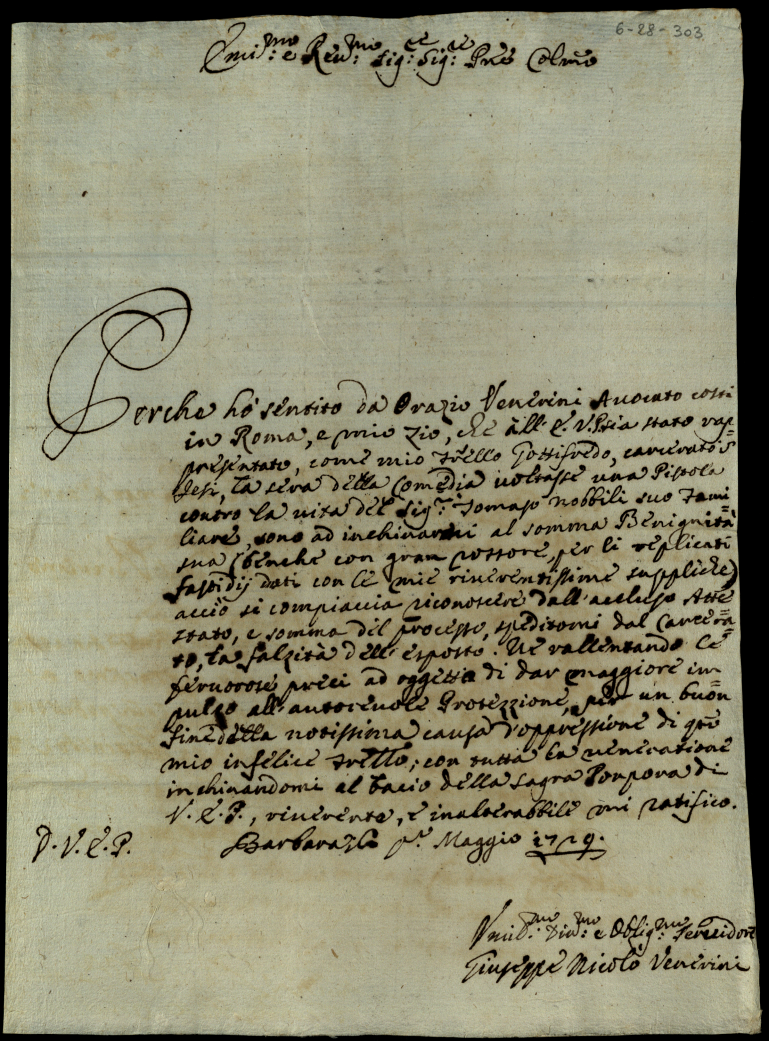 6-28-303
Emi:mo e Reu:mo Sig:re Sig:re Pñe Colmo
Perche hò sentito da Orazio Venerini Auocato costi
in Roma, e mio Zio, che all'E. V. sia stato rap=
presentato, come mio frello Gottifredo, carcerato
Jesi, la sera della Comedia uoltasse una Pistola
contro la uita del Sig:r Tomaso nobbili suo Fami=
liare, sono ad inchinarmi al somma Benignità
sua (benche con gran rossore, per li replicati
fastidij dati con le mie riuerentissime suppliche)
acciò si compiaccia riconoscere dall'acclusо Atte=
stato, e somma del processo, speditomi dal Carcera=
to, la falzità dell'esposto. Ne rallentando le
feruorose preci ad oggetto di dar maggiore im
pulso all'autoreuole Protezzione, per un buon
fine della notissima causa d'oppressione di qto
mio infelice frello; con tutta la ueneratione
inchinandomi al bacio della sagra Porpora di
V. E. P., riuerente, e inalterabbile mi ratifico.
D. V. E. P.
Barbara pr. Maggio 1729.
Vmil:mo Diu:mo e Oblig:mo Seruidore
Giuseppe Nicolò Venerini